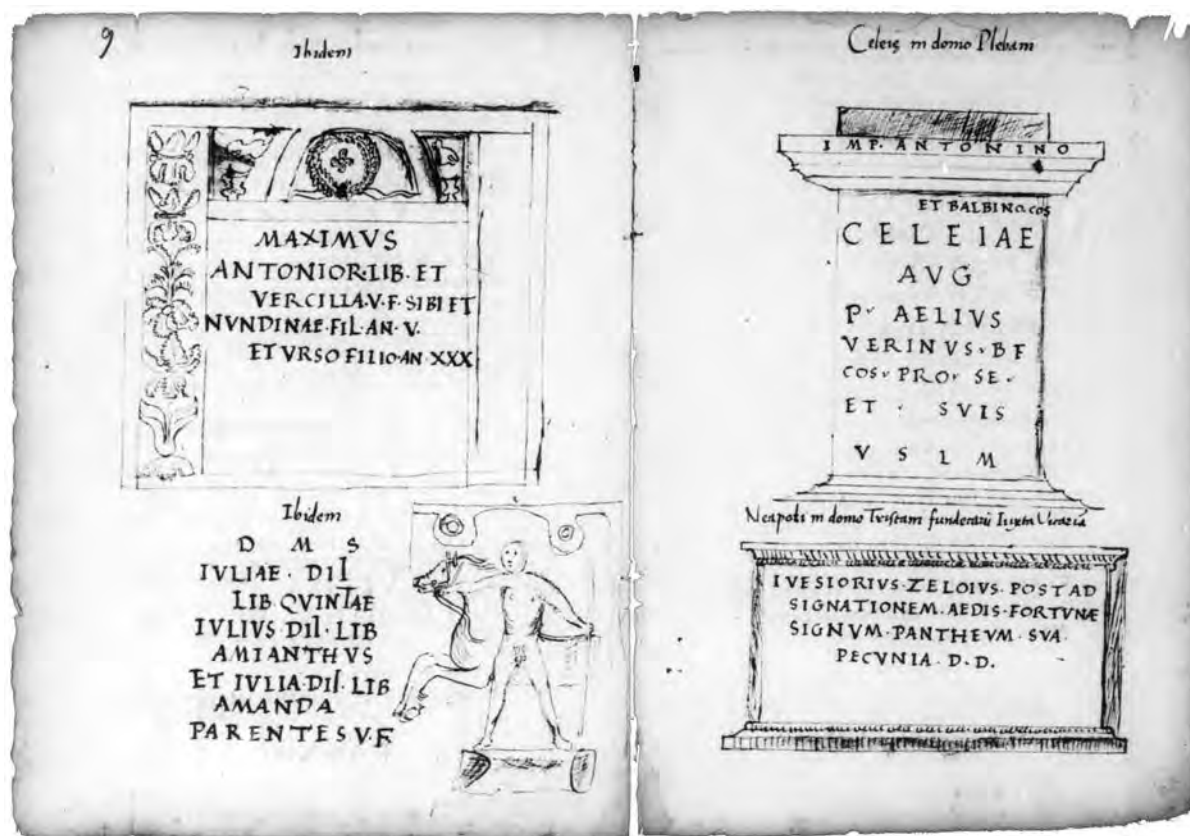 9
Ibidem
MAXIMVS
ANTONIOR·LIB·ET
VERCILLA·V·F·SIBI ET
NVNDINAE·FIL·AN·V·
ET VRSO FILIO·AN·XXX
Ibidem
D M S
IVLIAE · DIL
LIB QVINTAE
IVLIVS·DIL·LIB
AMIANTHVS
ET IVLIA·DIL·LIB
AMANDA
PARENTES V·F
Celeię in domo Plebani
IMP. ANTONINO
ET BALBINO COS
CELEIAE
AVG
P· AELIVS
VERINVS· BF
COS· PRO· SE·
ET · SVIS
V S L M
Neapoli in domo Tristani funderarii Iuxta
IVESIORIVS·ZELOIVS·POST AD
SIGNATIONEM·AEDIS·FORTVNÆ
SIGNVM·PANTHEVM·SVA·
PECVNIA·D·D·